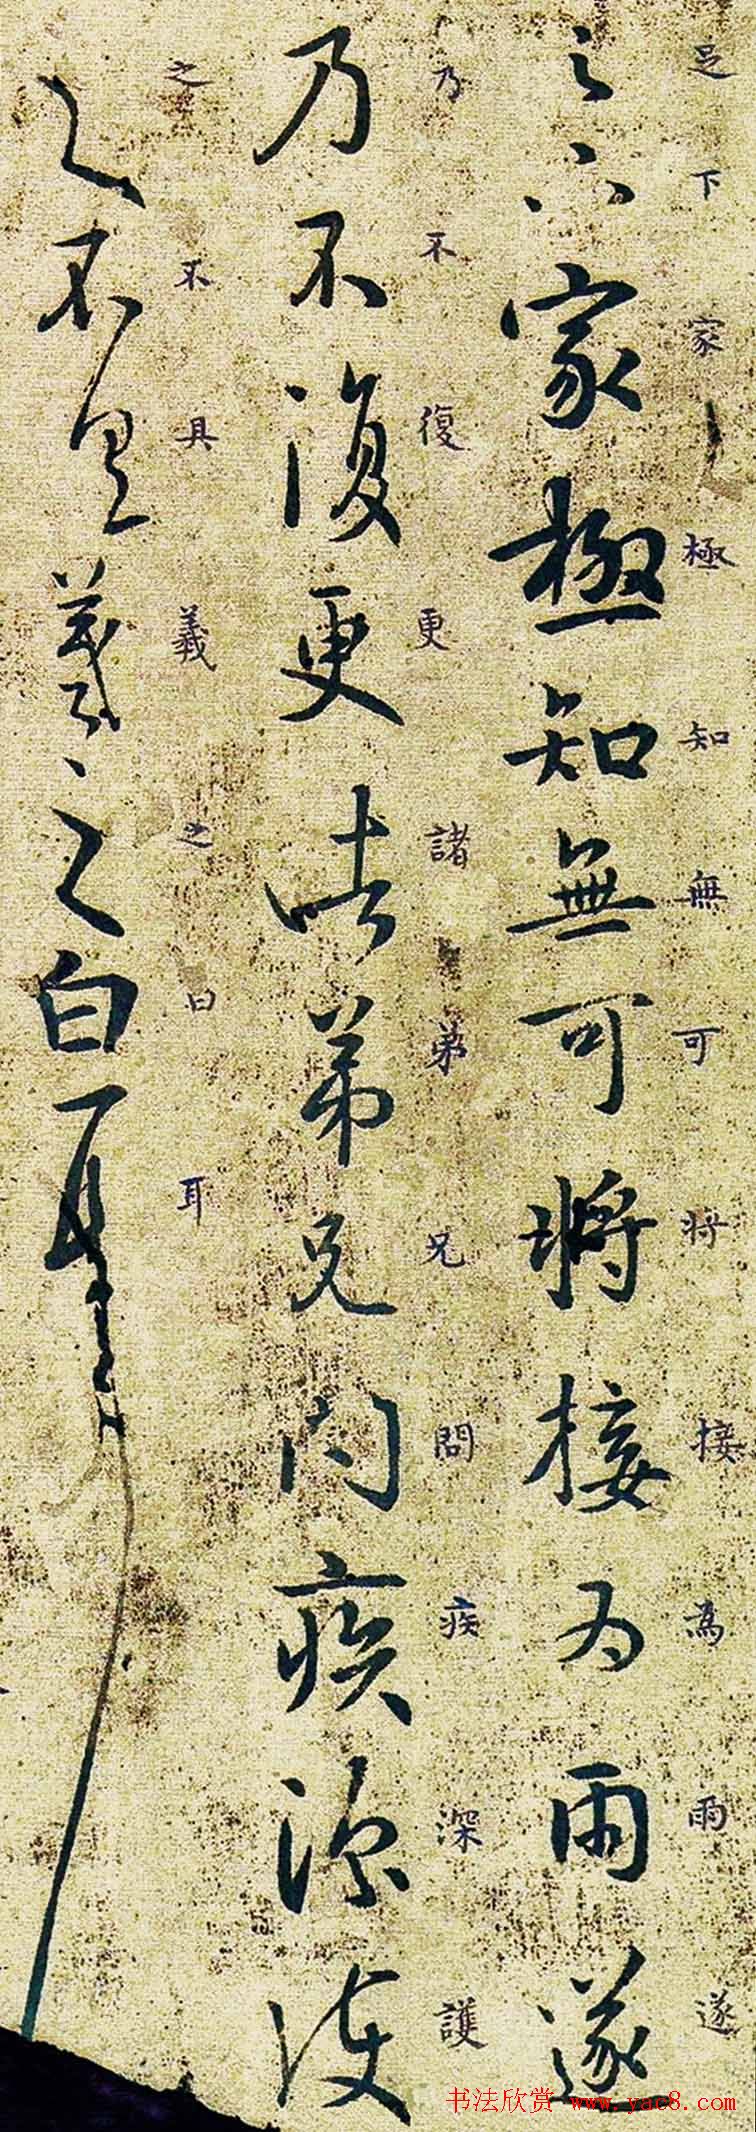 足下家極知無可將接為雨遂
足下家極知無可将接為雨遂
乃不復更諸弟兄問疾深護
乃不復更諸弟兄問疾深護
之不具羲之白耳
之不具羲之曰耳
书法欣赏 www.yac8.com